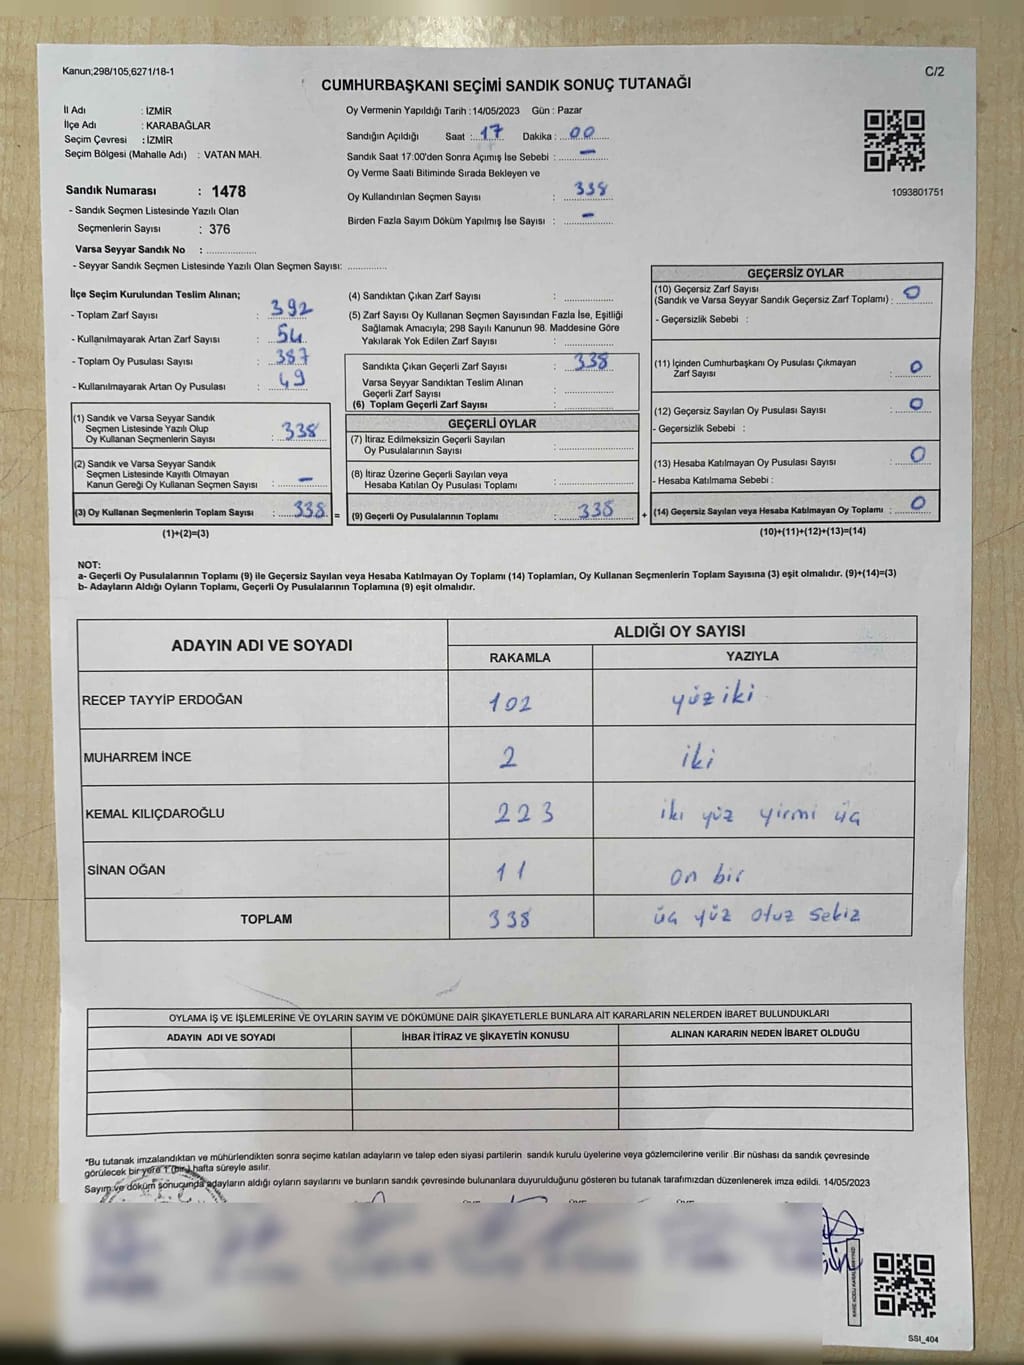 Kanun;298/105,6271/18-1
C/2
CUMHURBAŞKANI SEÇİMİ SANDIK SONUÇ TUTANAĞI
İl Adı : İZMİR
İlçe Adı : KARABAĞLAR
Seçim Çevresi : İZMİR
Seçim Bölgesi (Mahalle Adı) : VATAN MAH.
Sandık Numarası : 1478
- Sandık Seçmen Listesinde Yazılı Olan
Seçmenlerin Sayısı : 376
Varsa Seyyar Sandık No : ................
- Seyyar Sandık Seçmen Listesinde Yazılı Olan Seçmen Sayısı: .............
Oy Vermenin Yapıldığı Tarih : 14/05/2023 Gün : Pazar
Sandığın Açıldığı Saat : 17 Dakika : 00
Sandık Saat 17:00'den Sonra Açımış İse Sebebi : -
Oy Verme Saati Bitiminde Sırada Bekleyen ve
Oy Kullandırılan Seçmen Sayısı : 338
Birden Fazla Sayım Döküm Yapılmış İse Sayısı : -
1093801751
İlçe Seçim Kurulundan Teslim Alınan;
- Toplam Zarf Sayısı : 392
- Kullanılmayarak Artan Zarf Sayısı : 54
- Toplam Oy Pusulası Sayısı : 387
- Kullanılmayarak Artan Oy Pusulası : 49
(1) Sandık ve Varsa Seyyar Sandık
Seçmen Listesinde Yazılı Olup
Oy Kullanan Seçmenlerin Sayısı : 338
(2) Sandık ve Varsa Seyyar Sandık
Seçmen Listesinde Kayıtlı Olmayan
Kanun Gereği Oy Kullanan Seçmen Sayısı : -
(3) Oy Kullanan Seçmenlerin Toplam Sayısı : 338 =
(1)+(2)=(3)
(4) Sandıktan Çıkan Zarf Sayısı : ................
(5) Zarf Sayısı Oy Kullanan Seçmen Sayısından Fazla İse, Eşitliği
Sağlamak Amacıyla; 298 Sayılı Kanunun 98. Maddesine Göre
Yakılarak Yok Edilen Zarf Sayısı : ................
Sandıkta Çıkan Geçerli Zarf Sayısı : 338
Varsa Seyyar Sandıktan Teslim Alınan
Geçerli Zarf Sayısı : ................
(6) Toplam Geçerli Zarf Sayısı : ................
GEÇERLİ OYLAR
(7) İtiraz Edilmeksizin Geçerli Sayılan
Oy Pusulalarının Sayısı : ................
(8) İtiraz Üzerine Geçerli Sayılan veya
Hesaba Katılan Oy Pusulası Toplamı : ................
(9) Geçerli Oy Pusulalarının Toplamı : 338 +
GEÇERSİZ OYLAR
(10) Geçersiz Zarf Sayısı
(Sandık ve Varsa Seyyar Sandık Geçersiz Zarf Toplamı) : 0
- Geçersizlik Sebebi :
(11) İçinden Cumhurbaşkanı Oy Pusulası Çıkmayan
Zarf Sayısı : 0
(12) Geçersiz Sayılan Oy Pusulası Sayısı : 0
- Geçersizlik Sebebi :
(13) Hesaba Katılmayan Oy Pusulası Sayısı : 0
- Hesaba Katılmama Sebebi :
(14) Geçersiz Sayılan veya Hesaba Katılmayan Oy Toplamı : 0
(10)+(11)+(12)+(13)=(14)
NOT:
a- Geçerli Oy Pusulalarının Toplamı (9) ile Geçersiz Sayılan veya Hesaba Katılmayan Oy Toplamı (14) Toplamları, Oy Kullanan Seçmenlerin Toplam Sayısına (3) eşit olmalıdır. (9)+(14)=(3)
b- Adayların Aldığı Oyların Toplamı, Geçerli Oy Pusulalarının Toplamına (9) eşit olmalıdır.
ADAYIN ADI VE SOYADI ALDIĞI OY SAYISI
RAKAMLA YAZIYLA
RECEP TAYYİP ERDOĞAN 102 yüz iki
MUHARREM İNCE 2 iki
KEMAL KILIÇDAROĞLU 223 iki yüz yirmi üç
SİNAN OĞAN 11 on bir
TOPLAM 338 üç yüz otuz sekiz
OYLAMA İŞ VE İŞLEMLERİNE VE OYLARIN SAYIM VE DÖKÜMÜNE DAİR ŞİKAYETLERLE BUNLARA AİT KARARLARIN NELERDEN İBARET BULUNDUKLARI
ADAYIN ADI VE SOYADI İHBAR İTİRAZ VE ŞİKAYETİN KONUSU ALINAN KARARIN NEDEN İBARET OLDUĞU
*Bu tutanak imzalandıktan ve mühürlendikten sonra seçime katılan adayların ve talep eden siyasi partilerin sandık kurulu üyelerine veya gözlemcilerine verilir .Bir nüshası da sandık çevresinde
görülecek bir yere 1 (bir) hafta süreyle asılır.
Sayım ve döküm sonucunda adayların aldığı oyların sayılarını ve bunların sandık çevresinde bulunanlara duyurulduğunu gösteren bu tutanak tarafımızdan düzenlenerek imza edildi. 14/05/2023
SSI_404